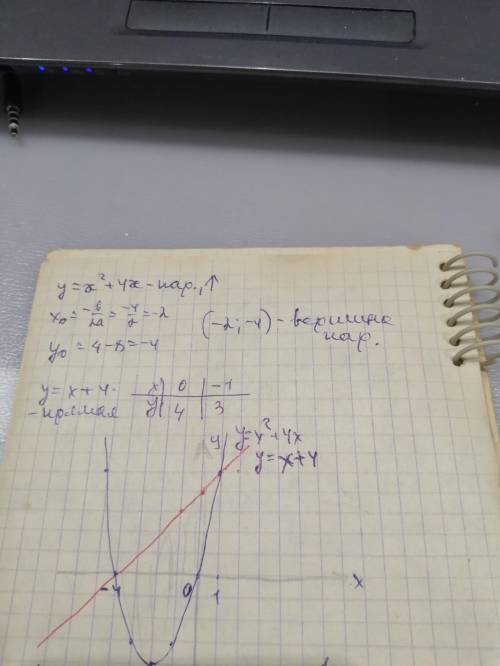 y = x² + 4x - пар., ↑
x₀ = -b/2a = -4/2 = -2
(-2; -4) - вершина пар.
y₀ = 4 - 8 = -4
y = x + 4 - - прямая
x | 0 | -1
y | 4 | 3
y
y = x² + 4x
y = x + 4
-4 0 1 x